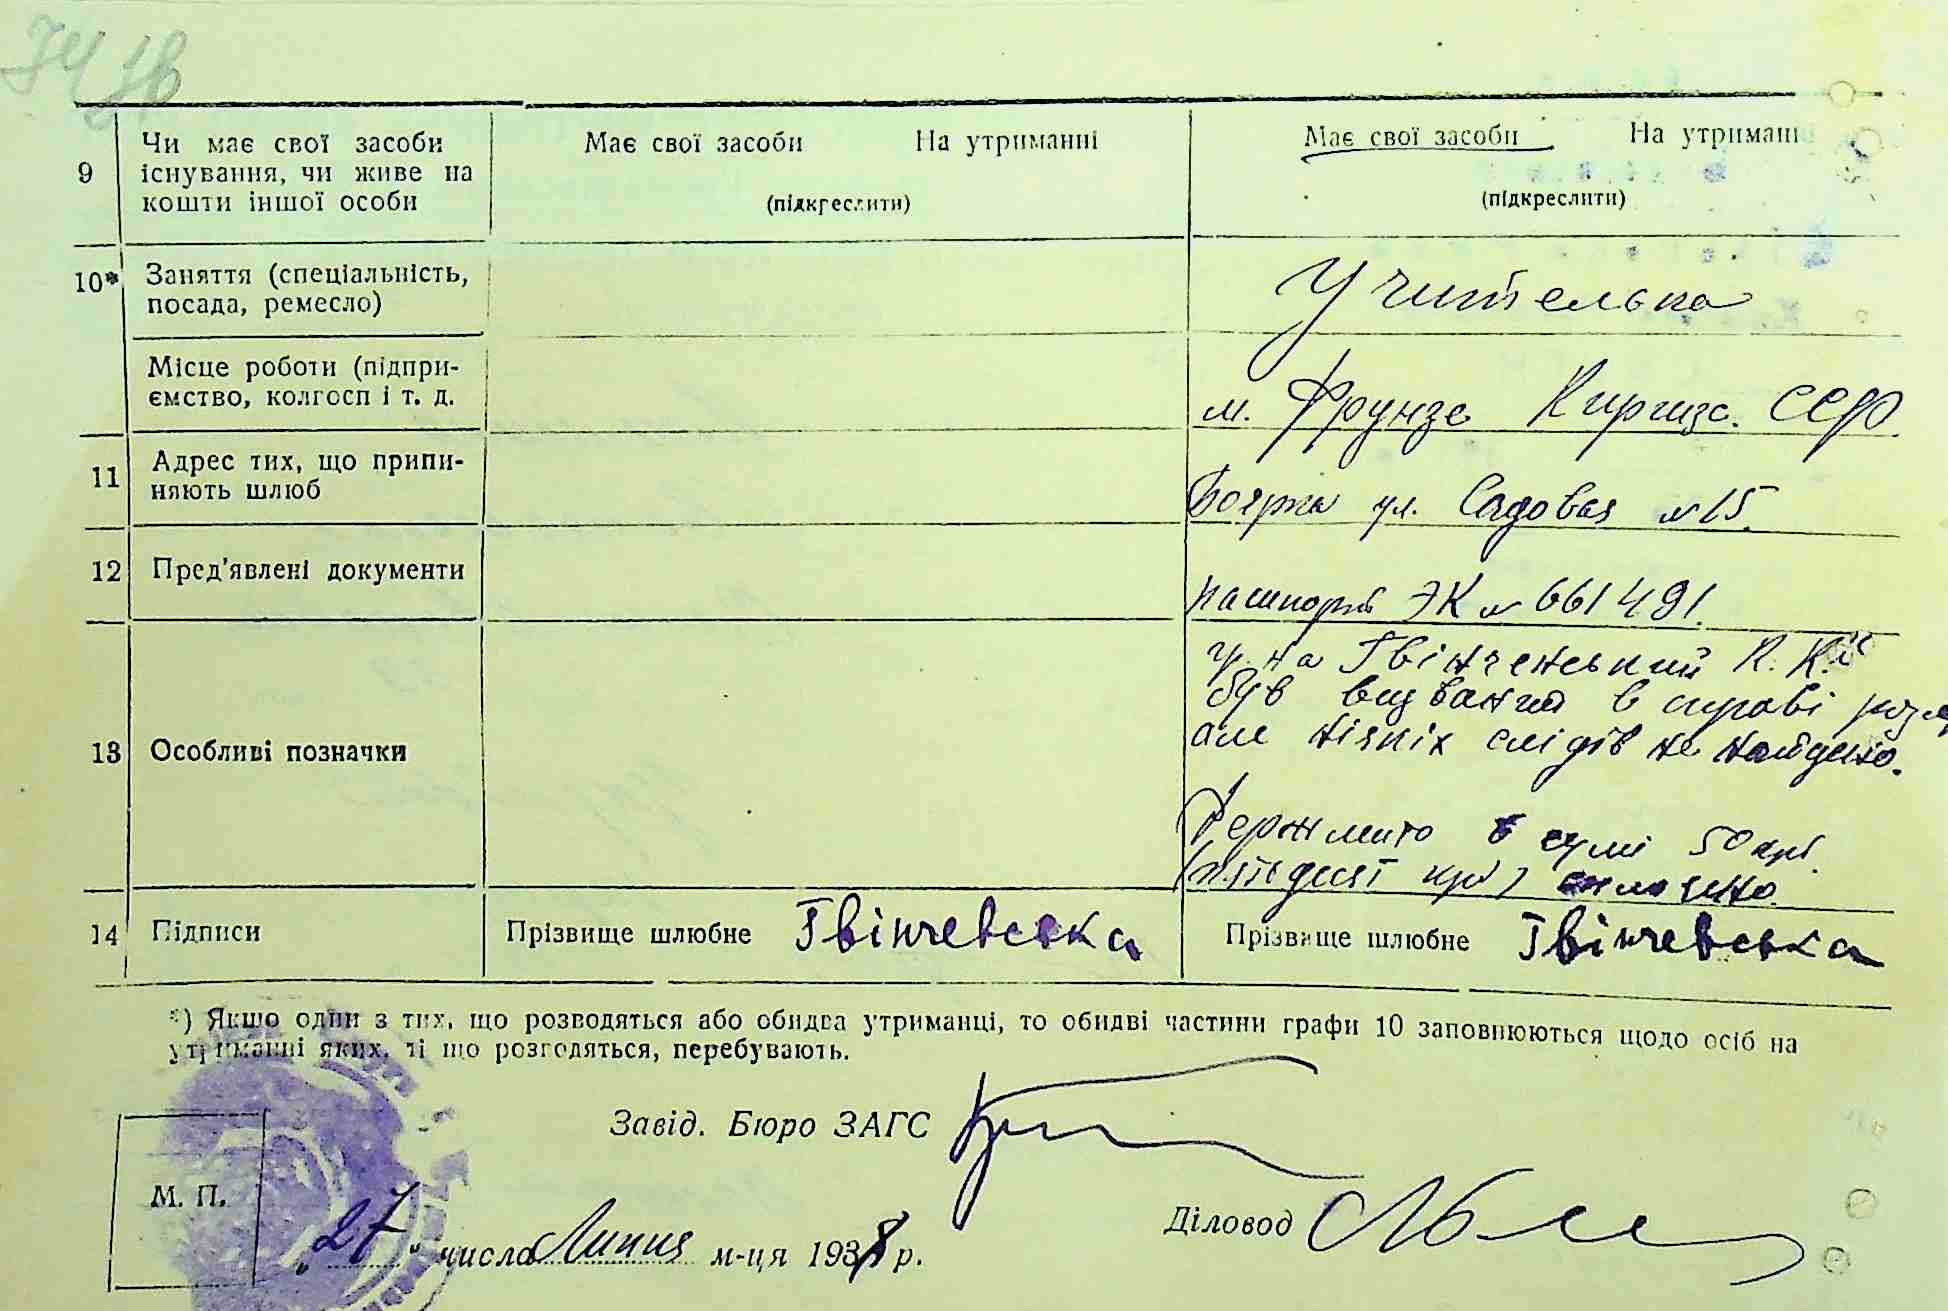 9 Чи має свої засоби існування, чи живе на кошти іншої особи
Має свої засоби На утриманні
(підкреслити)
Має свої засоби На утриманні
(підкреслити)
10* Заняття (спеціальність, посада, ремесло)
Учителька
Місце роботи (підпри-
ємство, колгосп і т. д.
м. Фрунзе Киргизс. ССР
11 Адрес тих, що припи-
няють шлюб
Боярка ул. Садовая №15.
12 Пред'явлені документи
пашпорт ЭК № 661491.
13 Особливі позначки
гр-на Гвінчевський К. К.
був визваний в справі
але ніяких слідів не найдено.
Держмито в сумі 50 крб.
(п'ятьдесят крб) сплочено.
14 Підписи
Прізвище шлюбне Гвінчевська
Прізвище шлюбне Гвінчевська
*) Якщо один з тих, що розводяться або обидва утриманці, то обидві частини графи 10 заповнюються щодо осіб на
утриманні яких, ті що розводяться, перебувають.
Завід. Бюро ЗАГС
М. П.
„27" числа Липня м-ця 1938 р.
Діловод